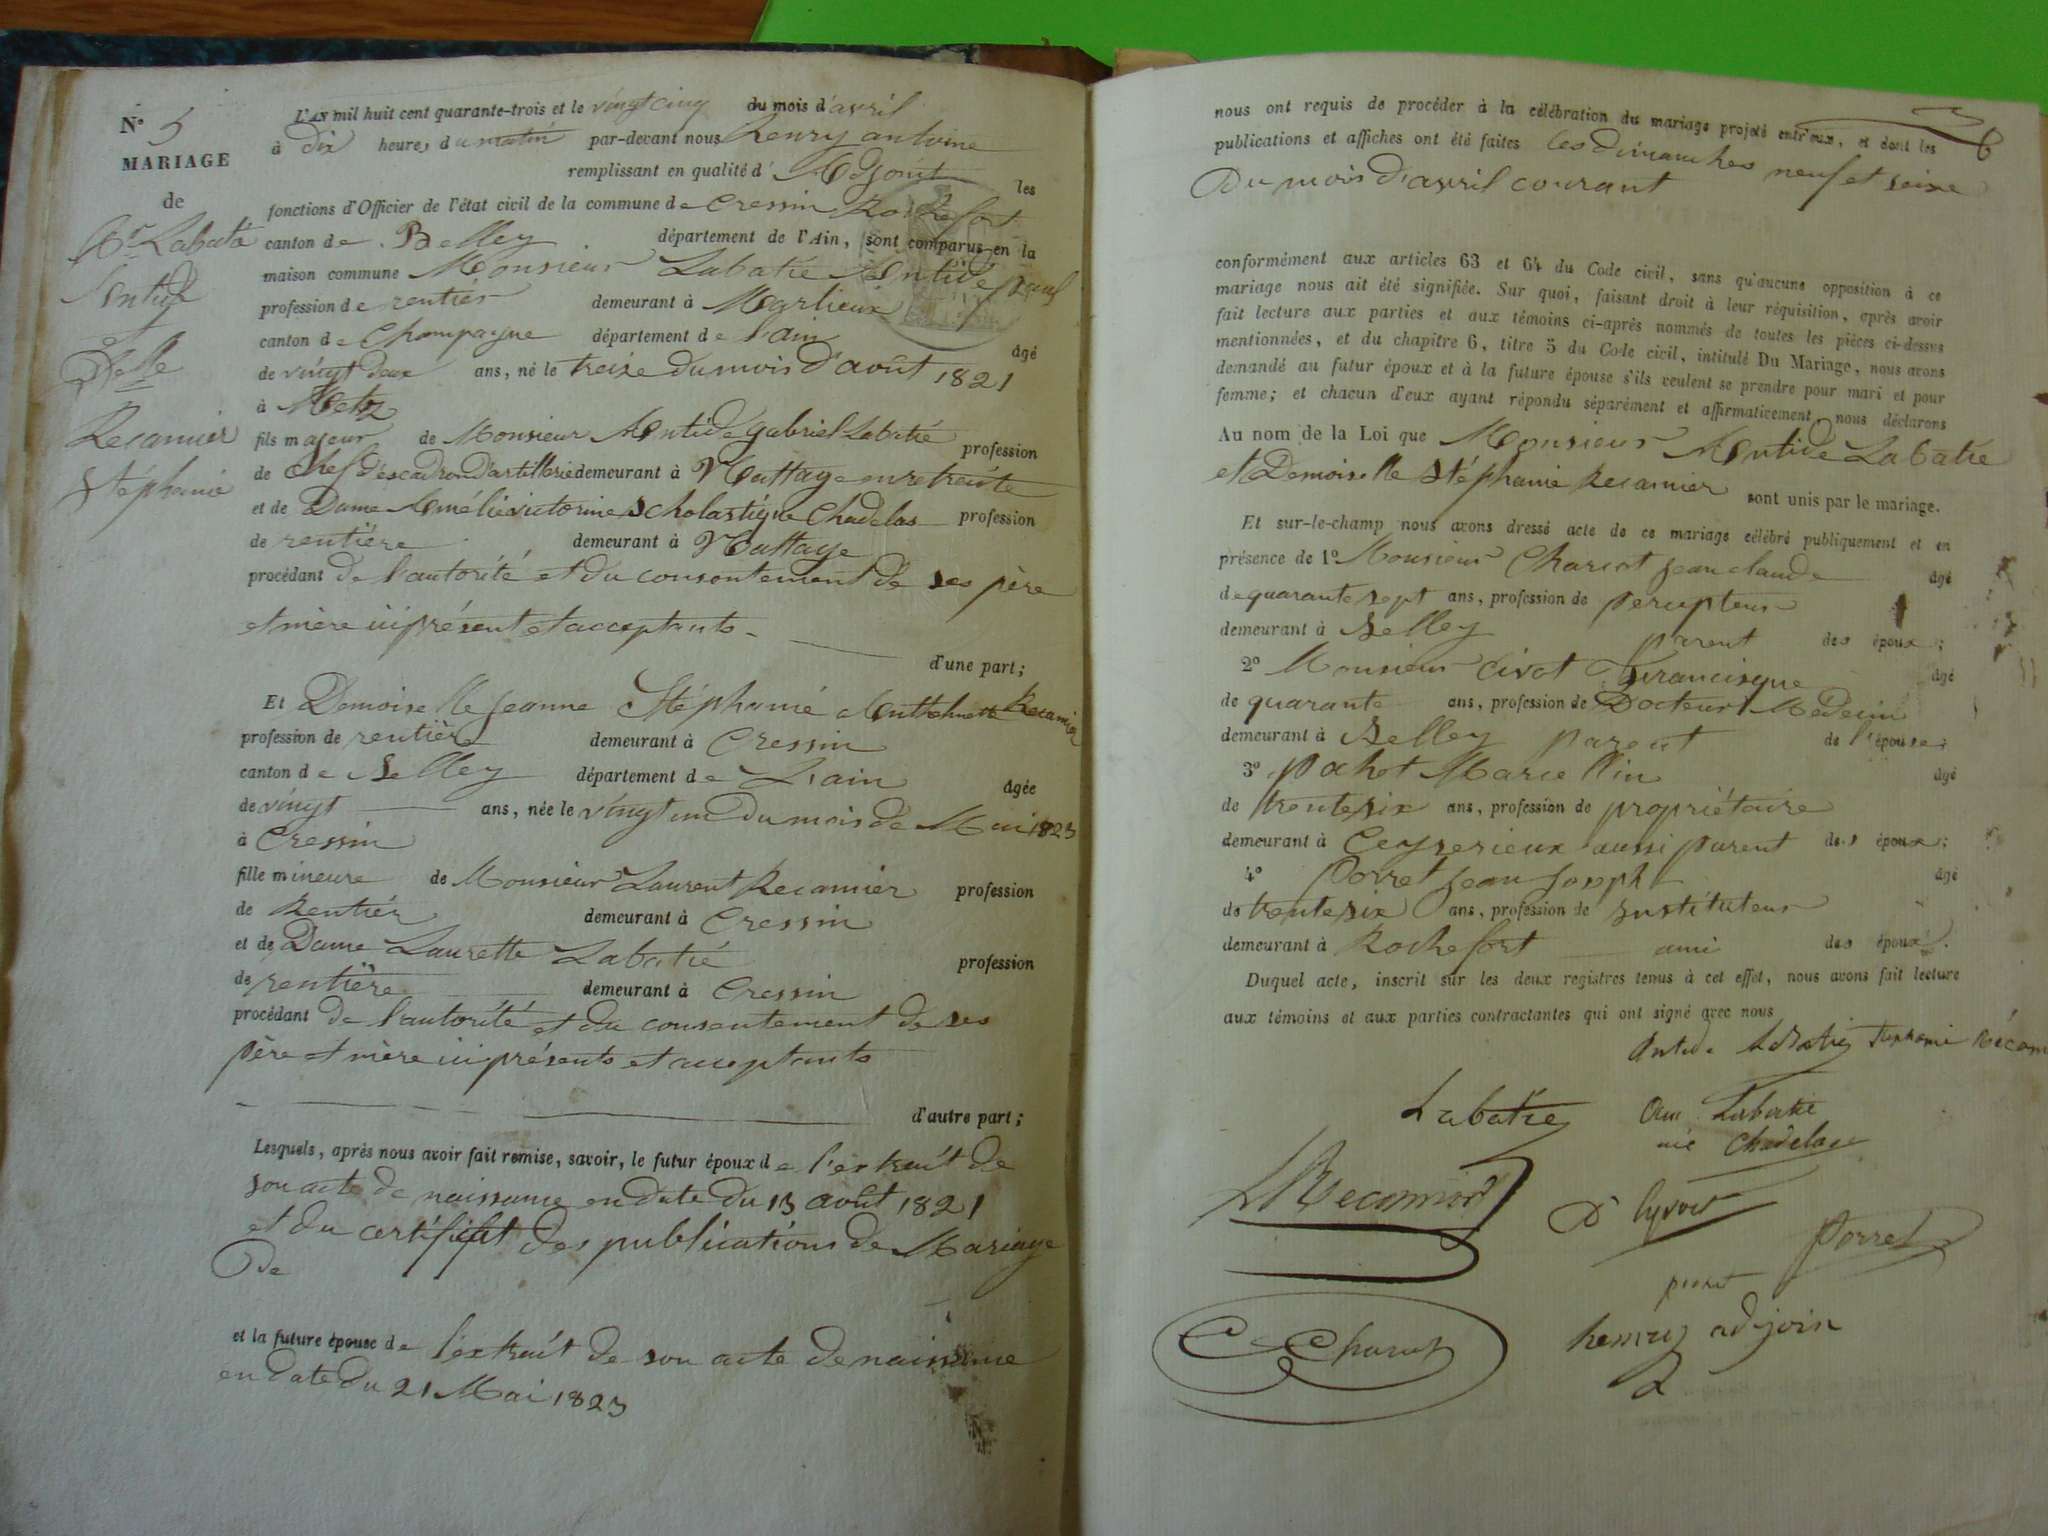 N.° 5
MARIAGE
de
Mr Labatie
Antide
et
Delle
Recamier
Stéphanie
L'AN mil huit cent quarante-trois et le vingt cinq du mois d'avril
à dix heures du matin par-devant nous henry antoine
remplissant en qualité d' Adjoint les
fonctions d'Officier de l'état civil de la commune de Cressin Rochefort
canton de Belley département de l'Ain, sont comparus en la
maison commune Monsieur Labatie Antide
profession de rentier demeurant à Marlieux
canton de Champagne département de l'ain âgé
de vingt deux ans, né le treize du mois d'août 1821
à Metz
fils majeur de Monsieur Antide Gabriel Labatié profession
de Chef d'éscadron d'artillerie demeurant à Nattage en retreite
et de Dame Amélie victorine Scholastique Chadelas profession
de rentière demeurant à Nattage
procédant de l'autorité et du consentement de ses père
et mère ici présent et acceptants
d'une part;
Et Demoiselle Jeanne Stéphanie Anthelmette Recamier
profession de rentière demeurant à Cressin
canton de Belley département de L'ain âgée
de vingt ans, née le vingt un du mois de Mai 1823
à Cressin
fille mineure de Monsieur Laurent Recamier profession
de Rentier demeurant à Cressin
et de Dame Laurette Labatié profession
de rentière demeurant à Cressin
procédant de l'autorité et du consentement de ses
père et mère ici présents et acceptants
d'autre part;
Lesquels, après nous avoir fait remise, savoir, le futur époux de l'extrait de
son acte de naissance en date du 13 août 1821
et du certificat des publications de Mariage
De
et la future épouse de l'éxtrait de son acte de naissance
en date du 21 Mai 1823
6
nous ont requis de procéder à la célébration du mariage projeté entr'eux, et dont les
publications et affiches ont été faites les dimanches neuf et seize
Du mois d'avril courant
conformément aux articles 63 et 64 du Code civil, sans qu'aucune opposition à ce
mariage nous ait été signifiée. Sur quoi, faisant droit à leur réquisition, après avoir
fait lecture aux parties et aux témoins ci-après nommés de toutes les pièces ci-dessus
mentionnées, et du chapitre 6, titre 5 du Code civil, intitulé Du Mariage, nous avons
demandé au futur époux et à la future épouse s'ils veulent se prendre pour mari et pour
femme; et chacun d'eux ayant répondu séparément et affirmativement, nous déclarons
Au nom de la Loi que Monsieur Antide Labatie
et Demoiselle Stéphanie Recamier sont unis par le mariage.
Et sur-le-champ nous avons dressé acte de ce mariage célébré publiquement et en
présence de 1° Monsieur Charcot jean claude âgé
de quarante sept ans, profession de percepteur
demeurant à Belley parent des époux;
2° Monsieur Civot Francisque âgé
de quarante ans, profession de Docteur Médecin
demeurant à Belley parent de l'épouse;
3° pochet Marcellin âgé
de trente six ans, profession de propriétaire
demeurant à Ceyzerieux aussi parent des époux;
4° Porret jean joseph âgé
de trente six ans, profession de instituteur
demeurant à Rochefort ami des époux.
Duquel acte, inscrit sur les deux registres tenus à cet effet, nous avons fait lecture
aux témoins et aux parties contractantes qui ont signé avec nous
Antide Labatie Stéphanie Récam
Labatie Am Labatie
née Chadelas
LRecamier D Cyvoct Porret
pochet
Charcot henry adjoin